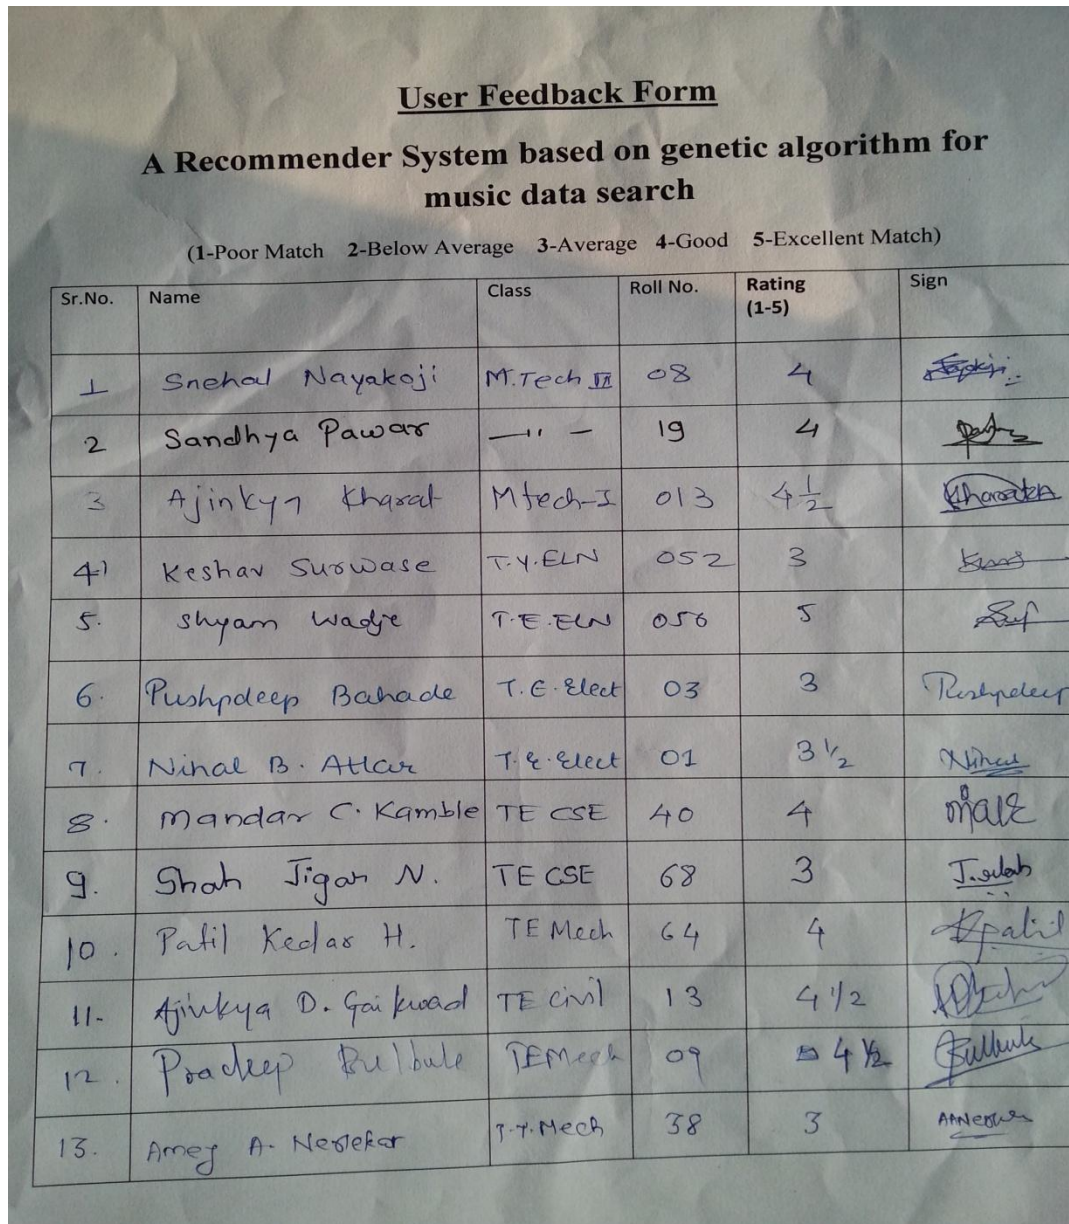 User Feedback Form
A Recommender System based on genetic algorithm for
music data search
(1-Poor Match 2-Below Average 3-Average 4-Good 5-Excellent Match)
Sr.No. Name Class Roll No. Rating (1-5) Sign
1 Snehal Nayakoji M.Tech II 08 4
2 Sandhya Pawar —〃— 19 4
3 Ajinkya Kharat Mtech-I 013 4 1/2
4) Keshav Surwase T.Y.ELN 052 3
5. Shyam Wadje T.E.ELN 056 5
6. Pushpdeep Bahade T.E.Elect 03 3 Pushpdeep
7. Nihal B. Attar T.E.Elect 01 3 1/2 Nihal
8. Mandar C. Kamble TE CSE 40 4
9. Shah Jigar N. TE CSE 68 3
10. Patil Kedar H. TE Mech 64 4 Kpatil
11. Ajinkya D. Gaikwad TE Civil 13 4 1/2
12. Pradeep Bulbule TE Mech 09 4 1/2 Bulbule
13. Amey A. Nerlekar T.Y.Mech 38 3